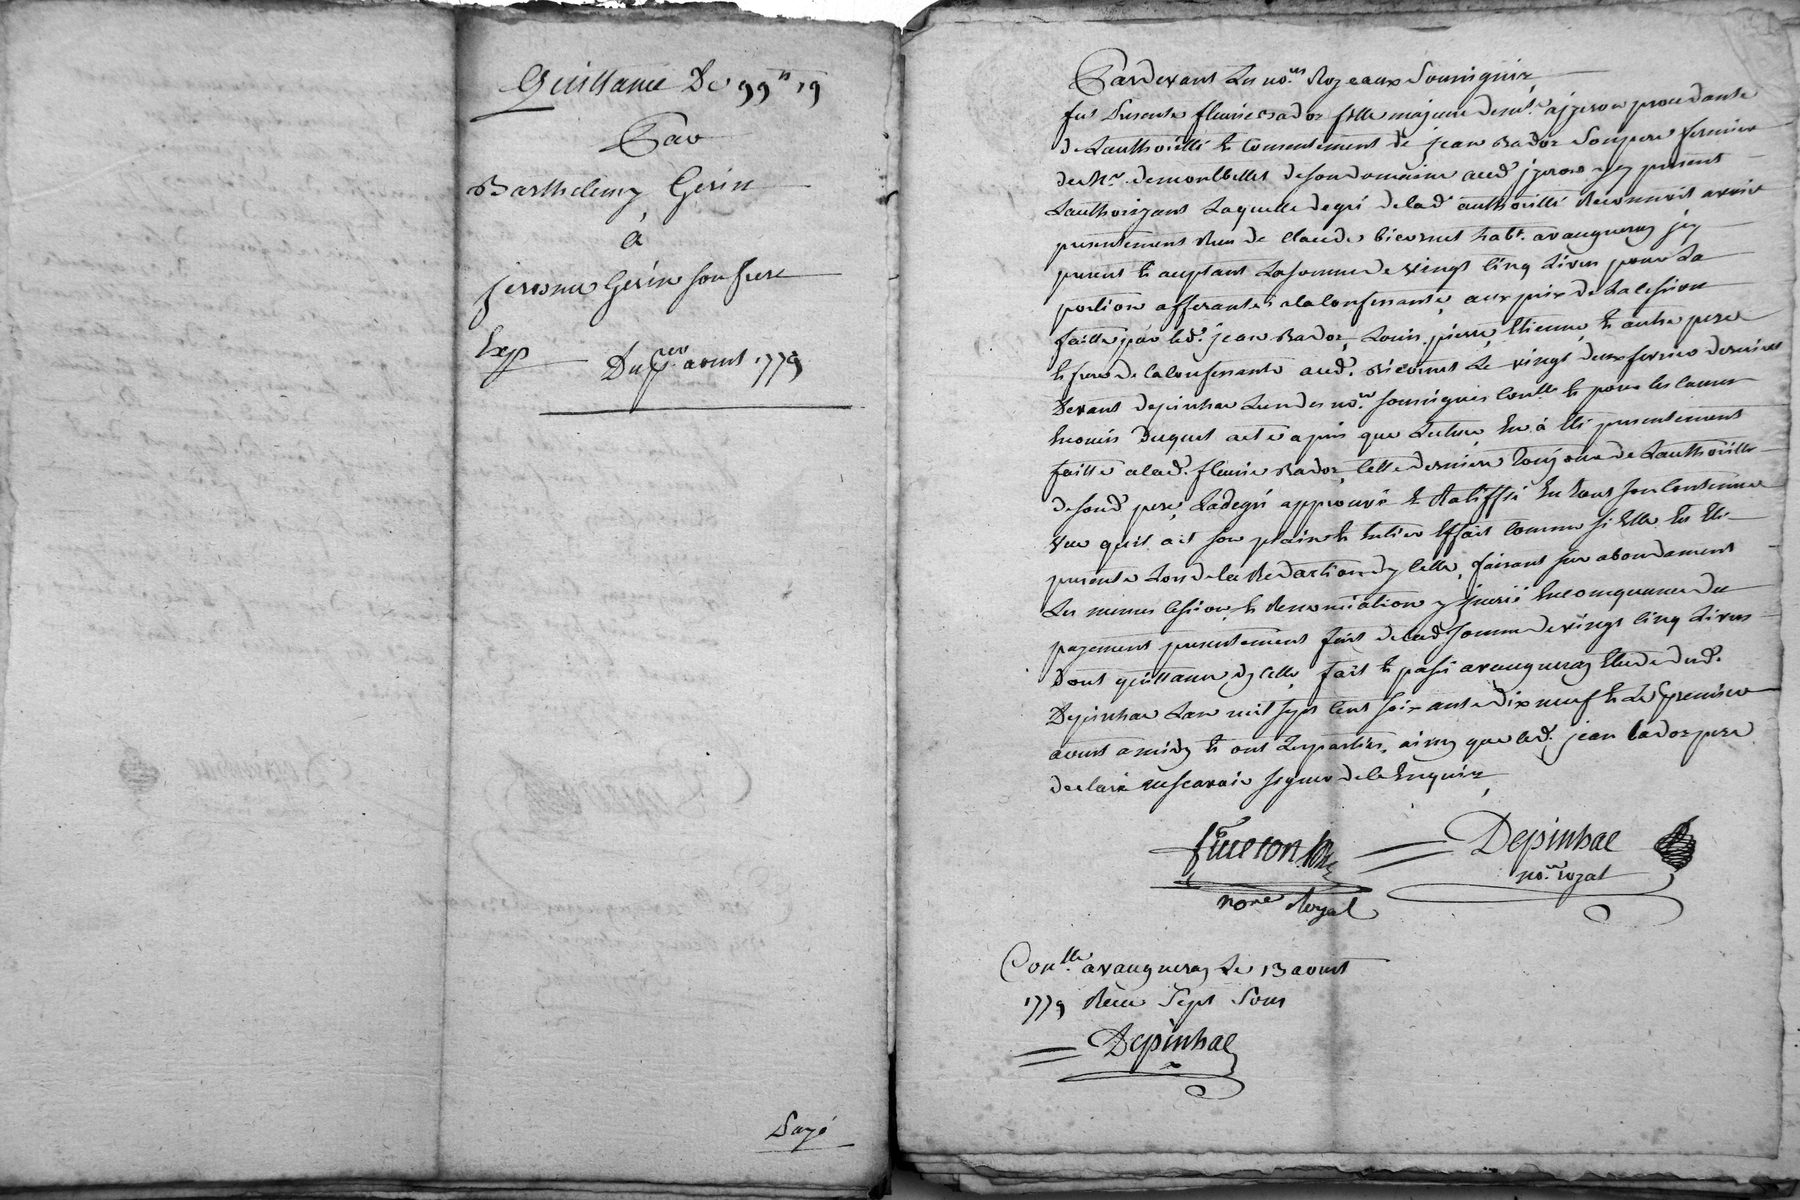 Quittance De 99ᵗᵗ 19
Par
Barthelemy Gerin
à
jerosme Gerin son frere
Exp
Du pᵉʳ aoust 1779
Payé
Pardevant Les noʳᵉˢ Royeaux Soussignés
fut presente fleurie Bador fille majeure de
de Lauthorité et Consentement de jean Bador Son pere fermier
de Mʳ. demontbellet de son domaine aud. yzeron icy present
Lauthorizant Laquelle de gré de lad. authorité Reconnoit avoir
presentement Reçu de Claude Bicornet habᵗ. a vaugneray icy
present et acceptant La somme de vingt cinq Livres pour La
portion afferante a la Confessante, aux prix de La cession
faitte par led. jean Bador, Louis, pierre, Etienne, et autre pere
et frere de la Confessante aud. Bicornet Le vingt deux fevrier dernier
devant depinhac Lun des noʳᵉˢ soussignés Conllé et pour les causes
Enoncés Duquel acte apres que Lecture En a été presentement
faitte a lad. fleurie Bador, Cette derniere toujours de Lauthorité
de sond. pere, La de gré approuvé et Ratiffié En tout son Contenu
veu quil ait son plain et Entier Effait Comme si Elle Eut Eté
presente Lors de la Redaction d'icelle, faisant sur abondament
Les memes Cession, et Renonciation y inseré En consequence du
payement presentement fait de lad. somme de vingt cinq Livres
Dont quittance d'icelle, fait et passé a vaugneray Etude dud.
Depinhac Lan mil sept Cent soixante dix neuf et Le premier
aoust a midy et ont Les parties, ainsy que led. jean bador pere
declaré ne scavoir signer de ce Enquis
Depinhac
noʳᵉ royal
noʳᵉ Royal
Conˡˡᵉ a vaugneray Le 13 aoust
1779 Reçu Sept Sous
Depinhac